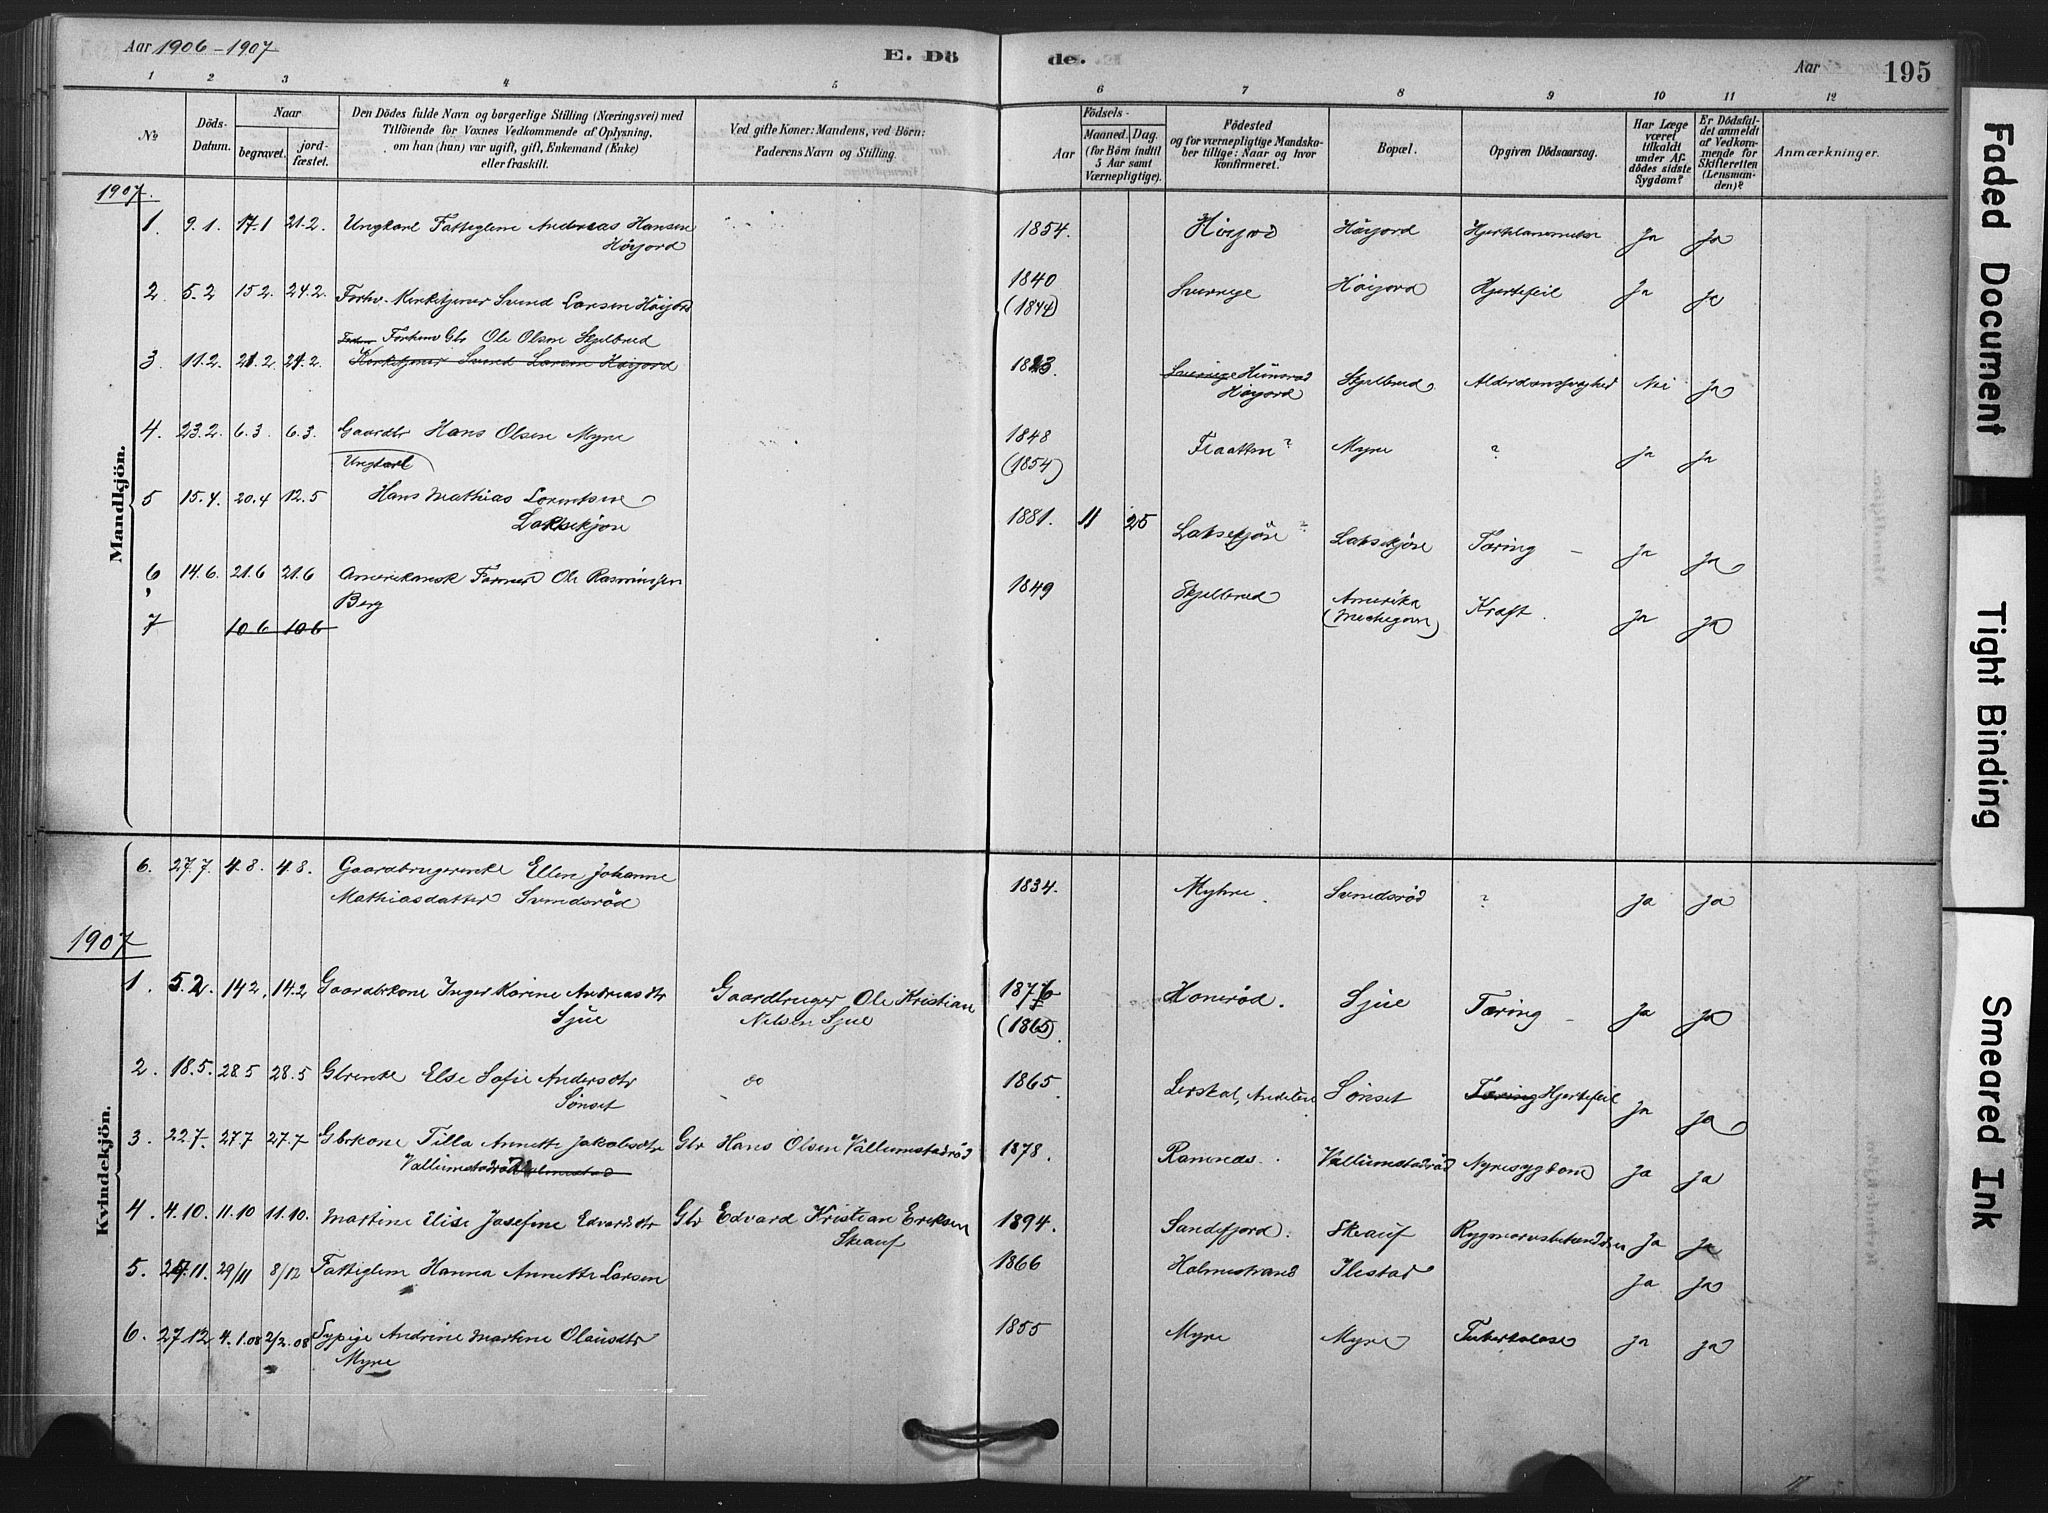 Aar 1906-1907
E. Dö
de.
Aar
195
1 2 3 4 5 6 7 8 9 10 11 12
No
Döds-Datum.
Naar
begravet.
jord-fæstet.
Den Dödes fulde Navn og borgerlige Stilling (Næringsvei) med
Tilföiende for Voxnes Vedkommende af Oplysning,
om han (hun) var ugift, gift, Enkemand (Enke)
eller fraskilt.
Ved gifte Koner: Mandens, ved Börn:
Faderens Navn og Stilling.
Födsels-
Aar
Maaned. Dag.
(for Börn indtil
5 Aar samt
Værnepligtige).
Födested
og for værnepligtige Mandska-
ber tillige: Naar og hvor
konfirmeret.
Bopæl.
Opgiven Dödsaarsag.
Har Læge
været
tilkaldt
under Af-
dödes sidste
Sygdom?
Er Dödsfal-
det anmeldt
af Vedkom-
mende for
Skifteretten
(Lensman-
den)?
Anmærkninger.
Mandkjön.
1907.
1. 9.1. 17.1 21.2. Ungkarl Fattiglem Andreas Hansen 1854. Höijord Höijord Hjertelammelse Ja Ja
Höijord
2 5.2 15.2. 24.2. Forhv. Kirketjener Svend Larsen Höijord 1840 Sverrige Höijord Hjertefeil Ja Ja
(1844)
Forhenv Gbr Ole Olsen Skjelbred
3 11.2. 21.2 21.2. Kirketjener Svend Larsen Höijord 1823. Sverrige Höijord Skjelbred Alderdomssvaghed Nei Ja
4. 23.2. 6.3. 6.3. Gaardbr Hans Olsen Myre 1848 ? Myre ? Ja Ja
(1854)
Ungkarl
5 15.4. 20.4 12.5 Hans Mathias Lorentsen 1881. 11 25 Laksekjön ? Laksekjön Tæring - Ja Ja
Laksekjön
6 14.6. 21.6 21.6 Amerikansk Farmer Ole Rasmussen 1849 Skjelbred Amerika Kræft. Ja Ja
Berg
7 10.6 10.6
Kvindekjön.
6. 27.7. 4.8. 4.8. Gaardbrugerenke Ellen Johanne 1834. Myhre. Svendsröd ? Ja Ja
Mathiasdatter Svendsröd
1907
1. 5.2. 14.2. 14.2 Gaardbrkone Inger Karine Andreasdtr Gaardbruger Ole Kristian 1876 Honeröd. Sjue Tæring - Ja Ja
Sjue Nilsen Sjue (1865).
2. 18.5. 28.5 28.5 Gbrenke Else Sofie Andersdtr 1865 Lerskal, Andebu Sönset Tæring Hjertefeil Ja Ja
Sönset
3. 22.7. 27.7 27.7 Gbrkone Tilla Annette Jakobsdtr Gbr Hans Olsen Vallumstadröd 1878. Ramnes. Vallumstadröd Nyresygdom Ja Ja
Vallumstadröd
4. 4.10. 11.10 11.10. Martine Elise Josefine Edvardsdtr Gbr Edvard Kristian Eriksen 1894. Sandefjord. Skeauf Ja Ja
Skeauf
5. 11. 29/11 8/12 Fattiglem Hanna Annette Larsen 1866 Holmestrand Ilestad Ja Ja
6. 27.12 4.1.08 2/2.08 Sypige Andrine Martine Olausdtr 1855 Myre Myre Tuberkulose Ja Ja
Myre
Faded Document
Tight Binding
Smeared Ink